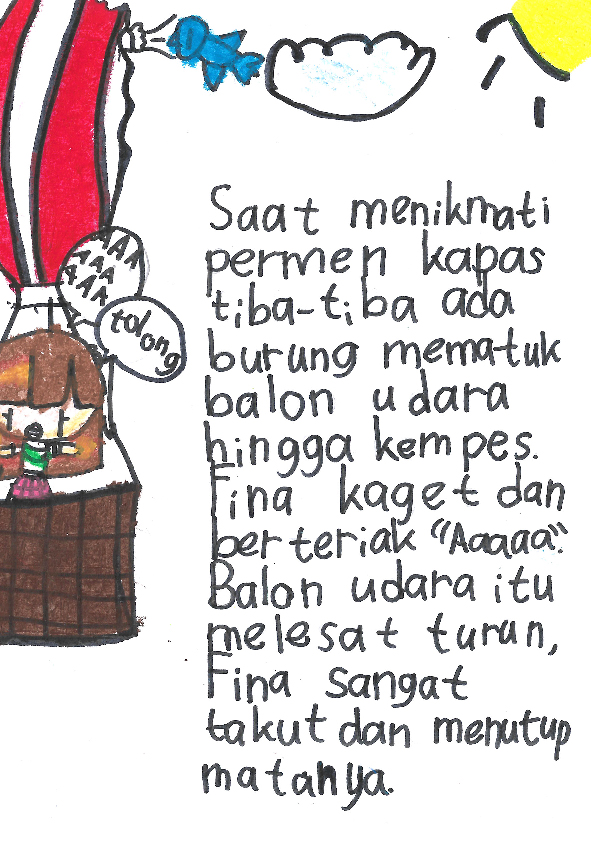 AAA
AAA
AAA
tolong
Saat menikmati
permen kapas
tiba-tiba ada
burung mematuk
balon udara
hingga kempes.
Fina kaget dan
berteriak "Aaaaa".
Balon udara itu
melesat turun,
Fina sangat
takut dan menutup
matanya.